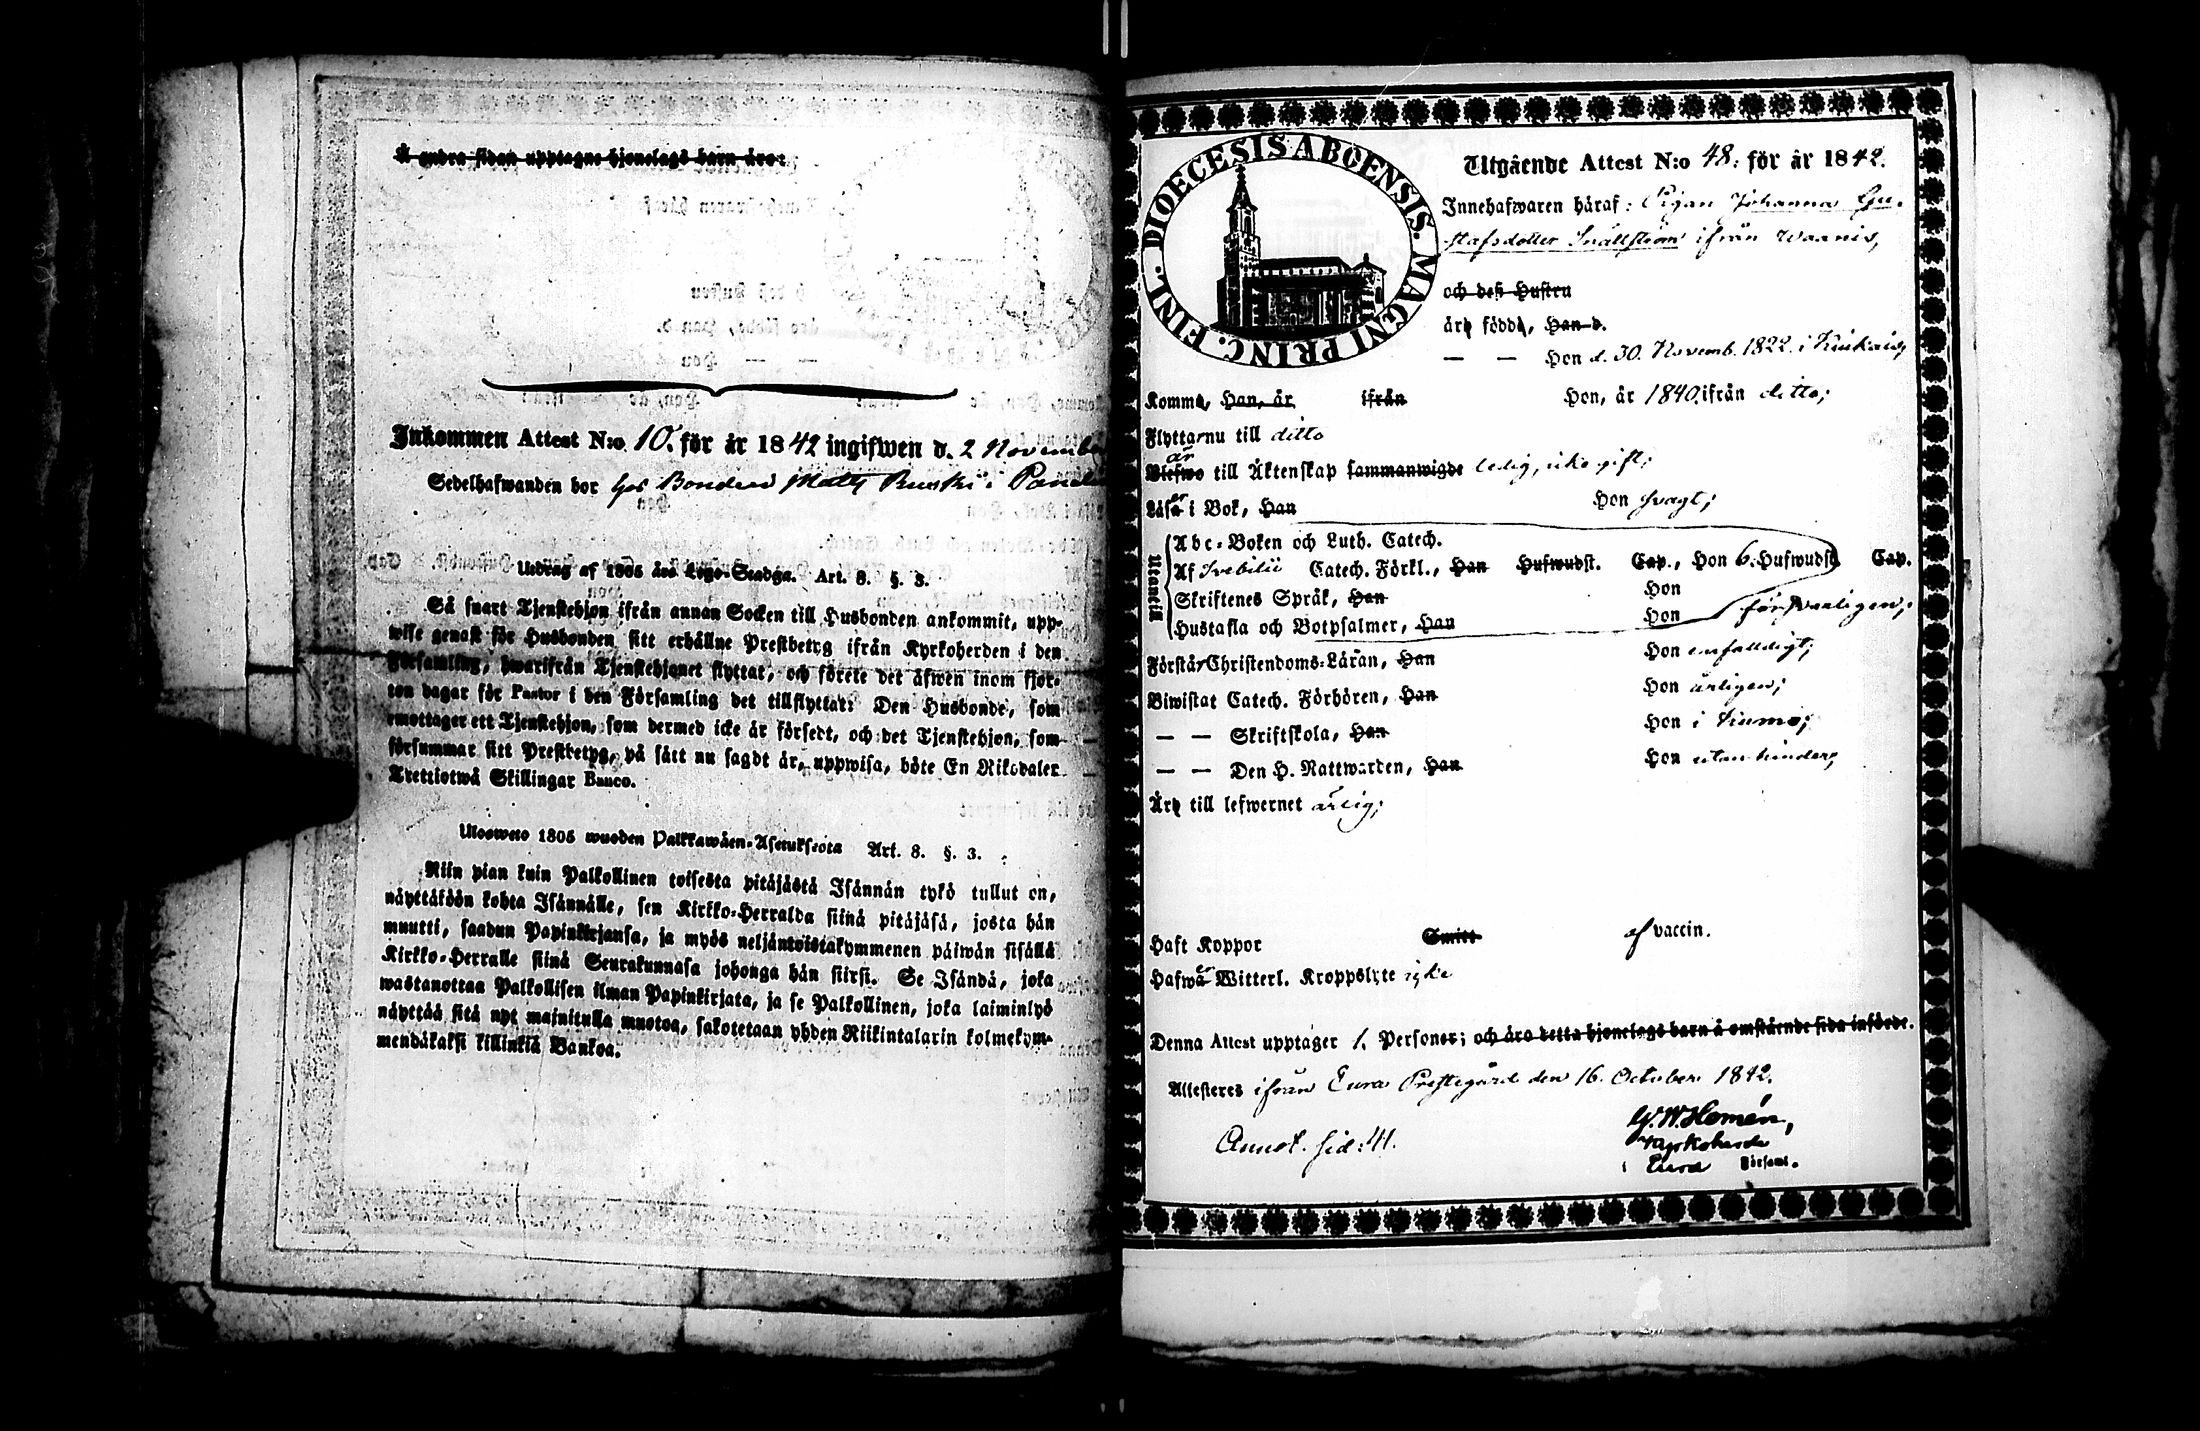 Å andra sidan upptagne hjonelags barn äro:
Inkommen Attest N:o 10. för år 1842 ingifwen d. 2 November
Sedelhafwanden bor hos Bonden Matts Ruski i
Utdrag af 1805 års Lego-Stadga. Art. 8. §. 3.
Så snart Tjenstehjon ifrån annan Socken till Husbonden ankommit, upp-
wise genast för Husbonden sitt erhållne Prestbetyg ifrån Kyrkoherden i den
Församling, hwarifrån Tjenstehjonet flyttat, och förete det äfwen inom fjor-
ton dagar för Pastor i den Församling det tillflyttat: Den Husbonde, som
emottager ett Tjenstehjon, som dermed icke är försedt, och det Tjenstehjon, som
försummar sitt Prestbetyg, på sätt nu sagdt är, uppwisa, böte En Riksdaler
Trettiotwå Skillingar Banco.
Ulosweto 1805 wuoden Palkkawäen-Asetuksesta Art. 8. §. 3.
Niin pian kuin Palkollinen toisesta pitäjästä Isännän tykö tullut on,
näyttäköön kohta Isännälle, sen Kirkko-Herralda siinä pitäjäsä, josta hän
muutti, saadun Papinkirjansa, ja myös neljäntoistakymmenen päiwän sisällä
Kirkko-Herralle siinä Seurakunnasa johonga hän siirsi. Se Isändä, joka
wastanottaa Palkollisen ilman Papinkirjata, ja se Palkollinen, joka laiminlyö
näyttää sitä nyt mainitulla muotoa, sakotetaan yhden Riikintalarin kolmekym-
mendäkaksi killinkiä Bankoa.
DIOECESIS ABOENSIS. MAGNI PRINC. FINL.
Utgående Attest N:o 48. för år 1842.
Innehafwaren häraf: Pigan Johanna Gu-
stafsdotter Snällström ifrån Waanis,
och deß Hustru
äro födde, Han d.
— — Hon d. 30. Novemb. 1822. i Kiukais,
Komme, Han, år ifrån Hon, år 1840. ifrån ditto;
Flytta nu till ditto
är
Blefwo till Äktenskap sammanwigde ledig, icke gift;
Läsa i Bok, Han Hon svagt;
Utaneis
Abc-Boken och Luth. Catech.
Af Svebilii Catech. Förkl., Han Hufwudst. Cap., Hon 6. Hufwudst. Cap.
Skriftenes Språk, Han Hon
Hustafla och Botpsalmer, Han Hon försvarligen;
Förstår Christendoms-Läran, Han Hon enfaldigt;
Biwistat Catech. Förhören, Han Hon årligen;
— — Skriftskola, Han Hon i Kiumo;
— — Den H. Nattwarden, Han Hon utan hinder;
Äro till lefwernet ärlig;
Haft Koppor Smitt af vaccin.
Hafwa Witterl. Kroppslyte icke
Denna Attest upptager 1. Personer; och äro detta hjonelags barn å omstående sida införde.
Attesteres ifrån Eura Prestegård den 16. October 1842.
G. W. Homén,
Kyrkoherde
i Eura Församl.
Annot. sid: 41.